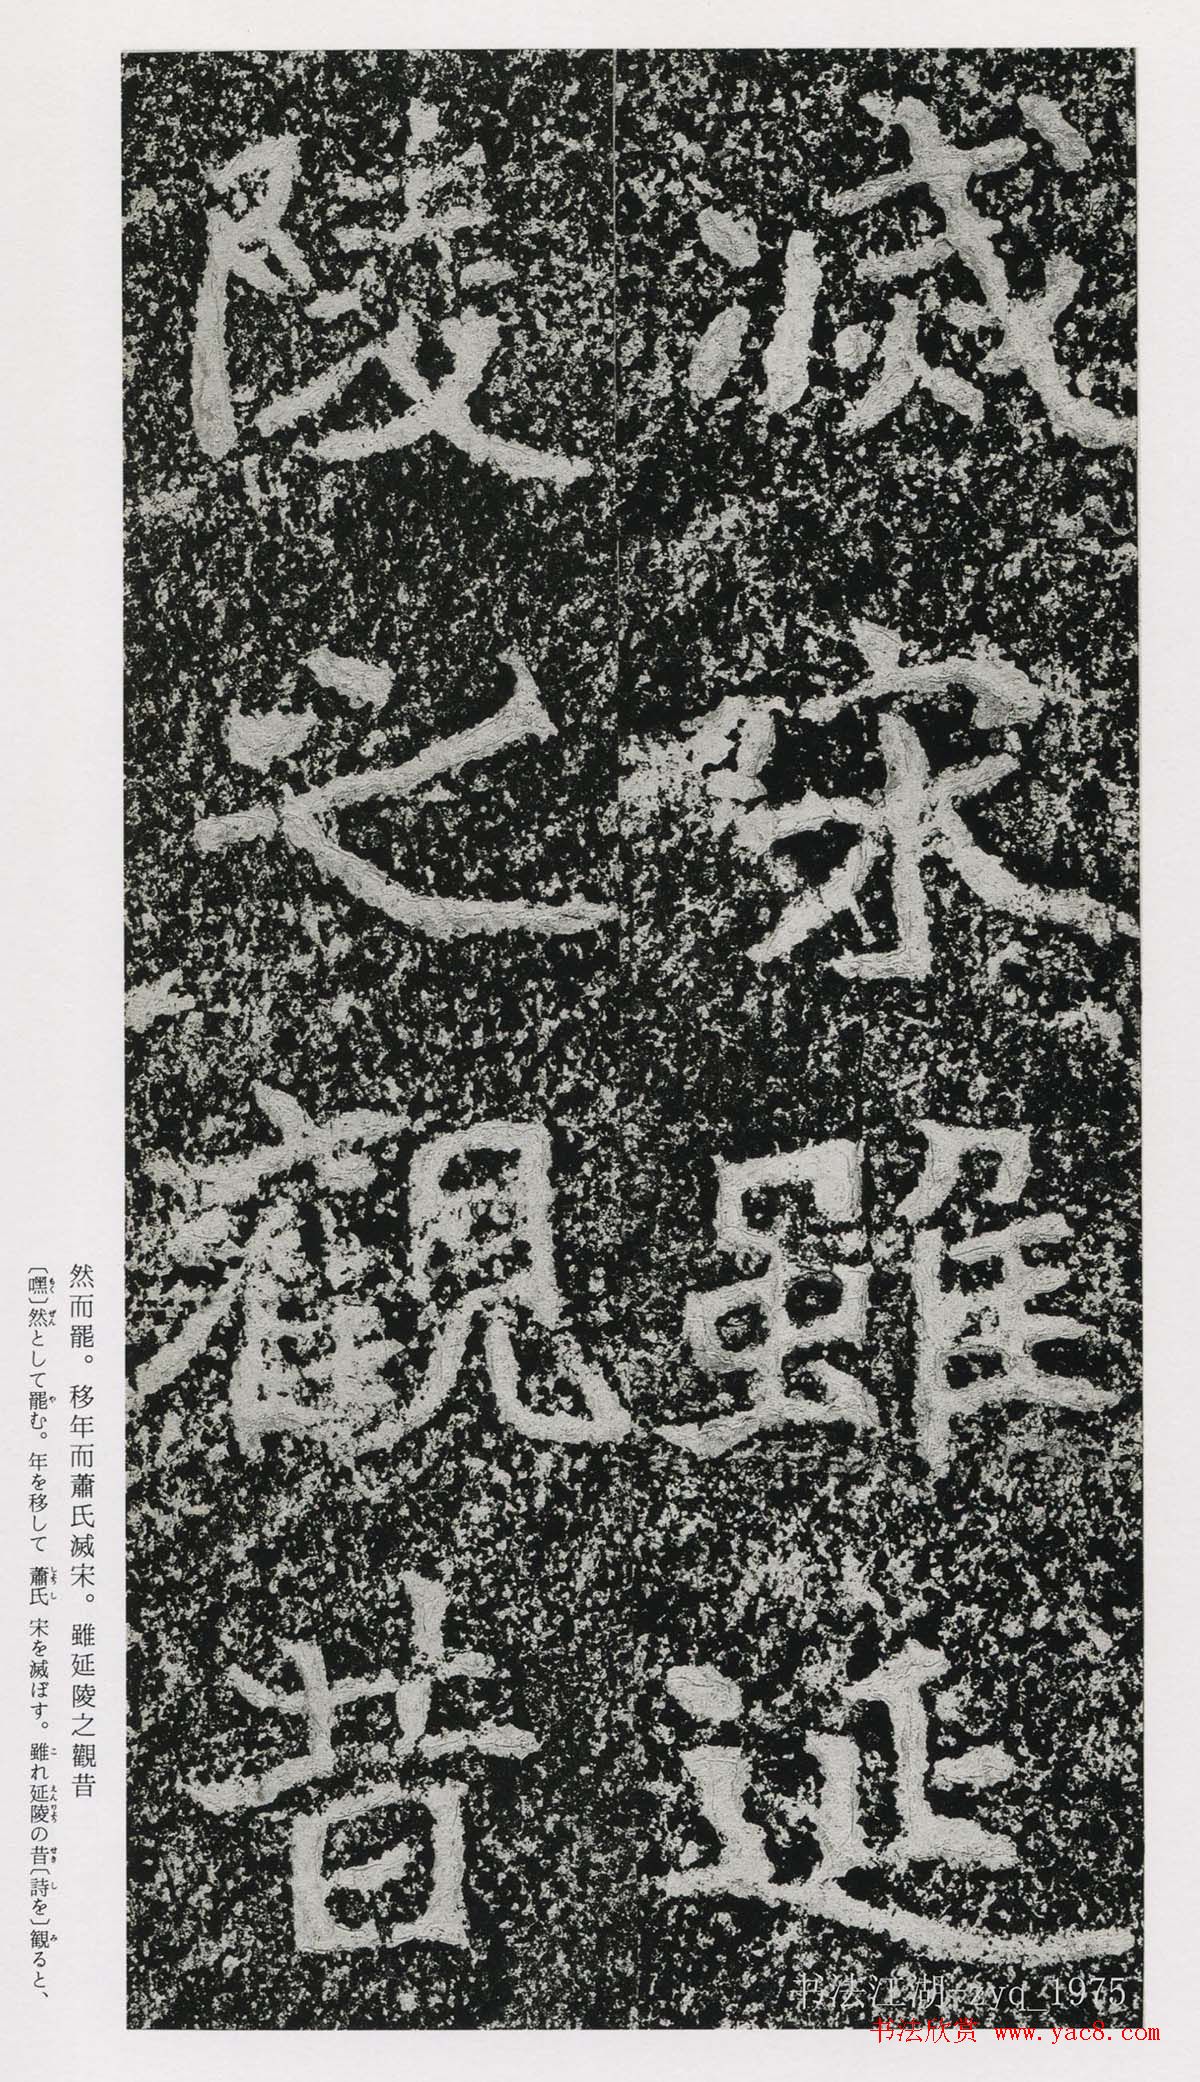 滅宋雖延
陵之觀昔
然而罷。移年而蕭氏滅宋。雖延陵之觀昔
〔嘿〕然として罷む。年を移して 蕭氏 宋を滅ぼす。雖れ延陵の昔〔詩を〕観ると、
もく ぜん や しょう し こ えんりょう せき し み
书法江湖-zyq_1975
书法欣赏 www.yac8.com